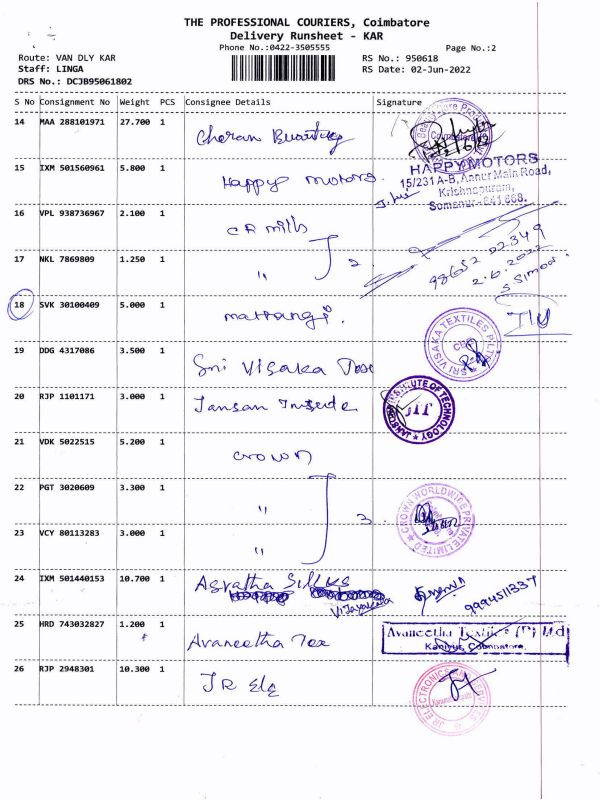 THE PROFESSIONAL COURIERS, Coimbatore
Delivery Runsheet - KAR
Phone No.:0422-3505555
Page No.:2
Route: VAN DLY KAR
RS No.: 950618
Staff: LINGA
RS Date: 02-Jun-2022
DRS No.: DCJB95061802
S No Consignment No Weight PCS Consignee Details Signature
14 MAA 288101971 27.700 1 Cheran
15 IXM 501560961 5.800 1 Happy motors.
HAPPY MOTORS
15/231 A-B, Annur Main Road,
Krishnapuram,
Somanur-641 668.
16 VPL 938736967 2.100 1 CR mills
17 NKL 7869809 1.250 1 " 2
98652 02349
2.6.2022
18 SVK 30100409 5.000 1
19 DDG 4317086 3.500 1 Sri Visaka
SRI VISAKA TEXTILES
20 RJP 1101171 3.000 1 Jansan
INSTITUTE OF TECHNOLOGY
21 VDK 5022515 5.200 1 crown
22 PGT 3020609 3.300 1 " 3
CROWN WORLDWIDE PRIVATE LIMITED
23 VCY 80113283 3.000 1 "
24 IXM 501440153 10.700 1
9994511337
25 HRD 743032827 1.200 1 Avaneetha Tex
Avaneetha Textiles (P) Ltd
Kaniyur, Coimbatore.
26 RJP 2948301 10.300 1 JR Ele
JR ELECTRONICS